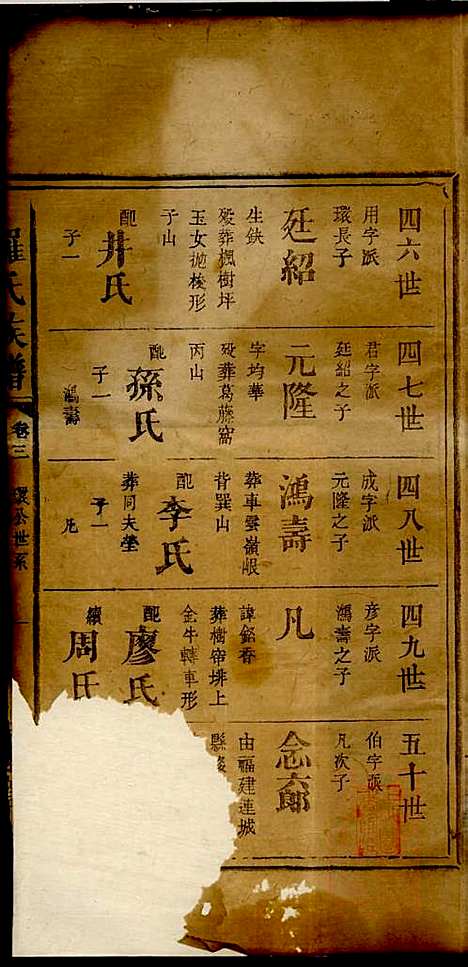 四六世
用字派
環長子
廷紹
生缺
歿葬楓樹坪
玉女拋梭形
子山
配
井氏
子一
四七世
君字派
廷紹之子
元隆
字均華
歿葬葛藤窩
丙山
配
孫氏
子一
鴻壽
四八世
成字派
元隆之子
鴻壽
葬車雲嶺岷
背巽山
配
李氏
葬同夫塋
子一
凡
四九世
彦字派
鴻壽之子
凡
諱銘香
葬樹帘埂上
金牛轉車形
配
廖氏
續
周氏
五十世
伯字派
凡次子
念六郎
由福建連城
縣
羅氏族譜
卷三
環公世系
一